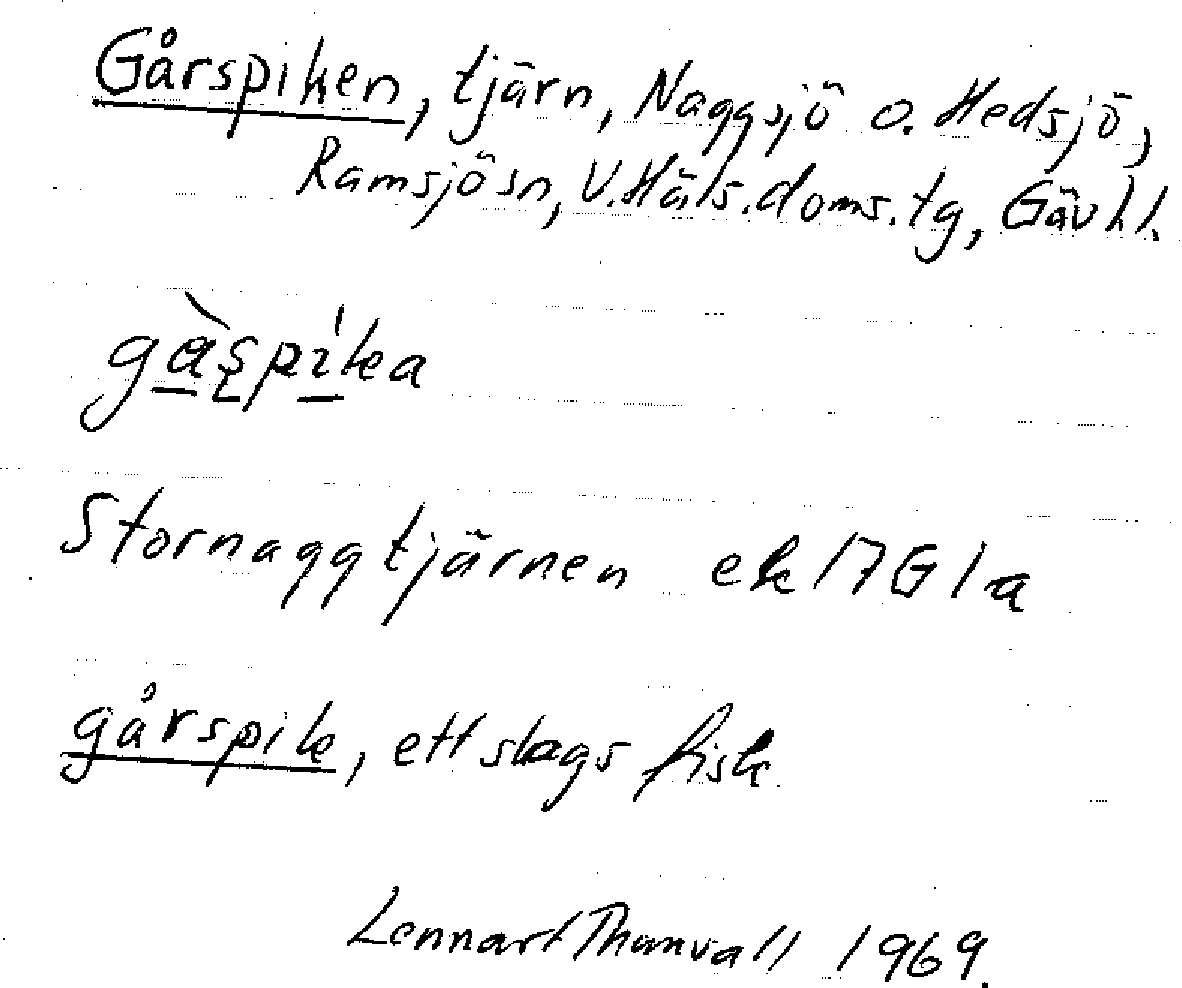 Gårspiken, tjärn, Naggsjö o. Hedsjö,
Ramsjösn, V. Häls. doms. tg, Gävl l.
gàʂpi'ka
Stornaggtjärnen ek 17G1a
gårspik, ett slags fisk
Lennart Thanvall 1969.